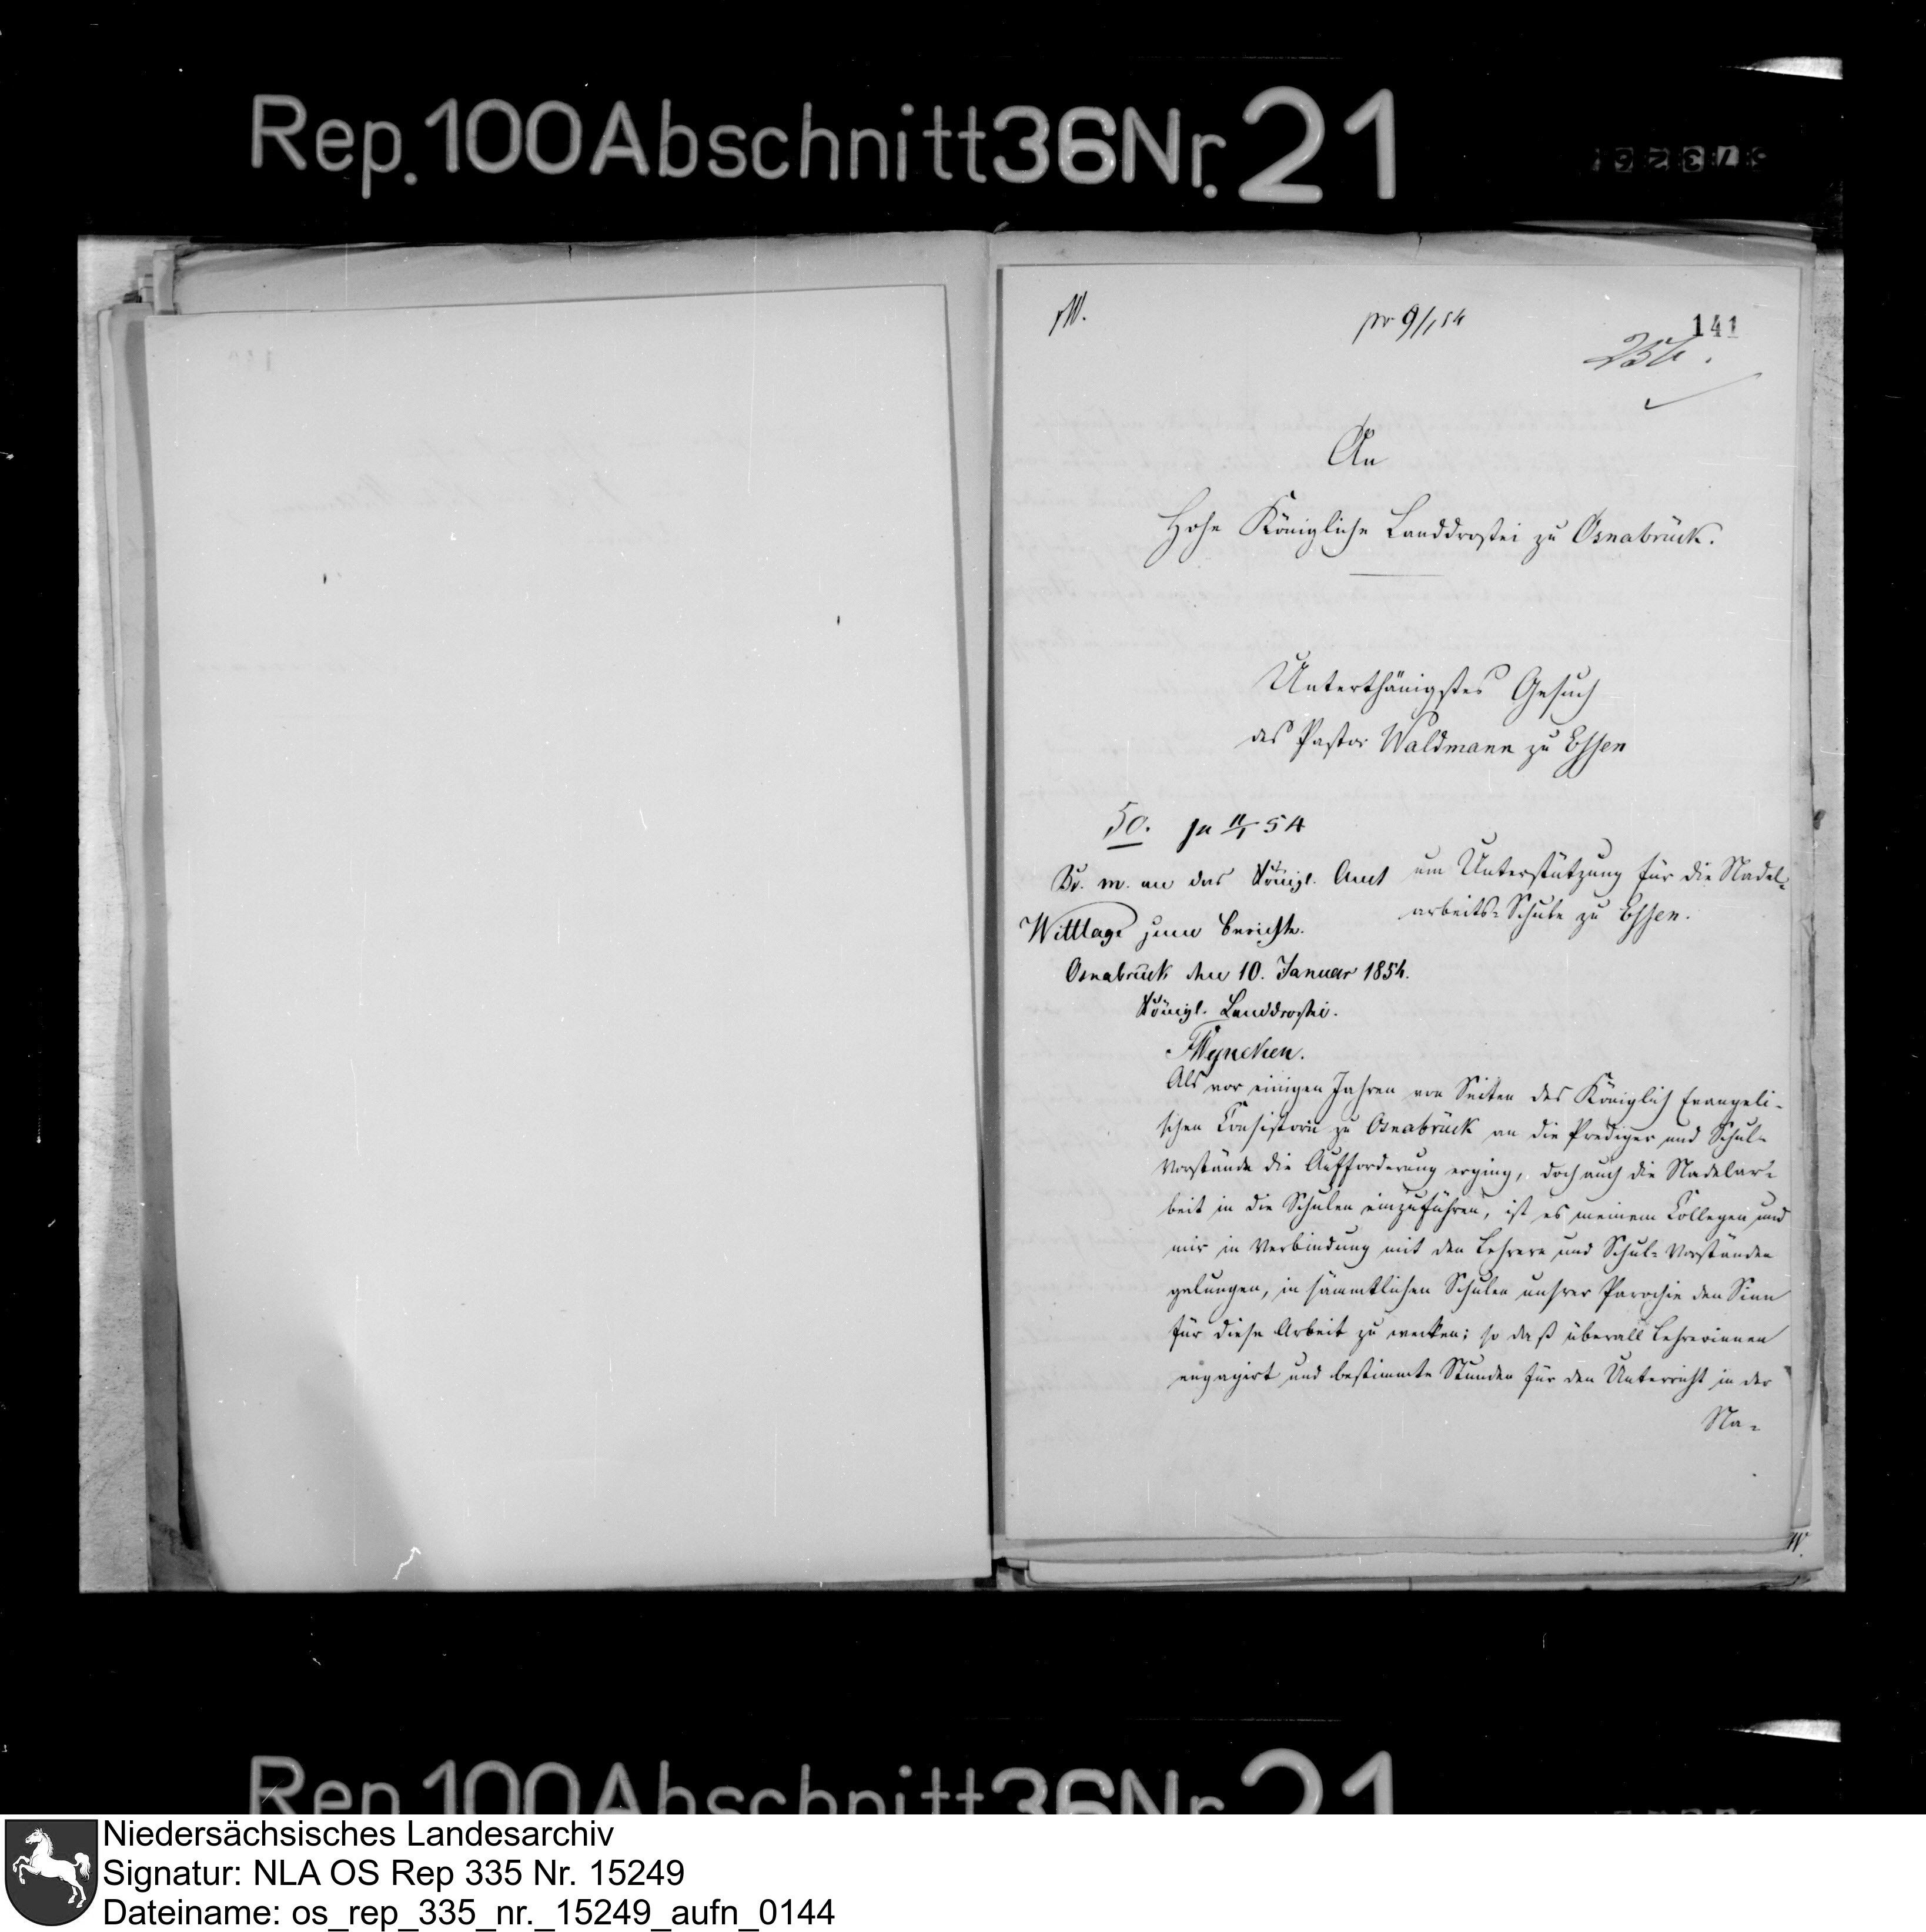 Rep. 100 Abschnitt 36 Nr. 21
pr 9/1 54
141
An
Hohe Königliche Landdrostei zu Osnabrück.
Unterthänigstes Gesuch
des Pastor Waldmann zu Essen
um Unterstützung für die Nadel-
arbeits-Schule zu Essen.
50. 11/1 54
Br. m. an das Königl. Amt
Wittlage zum Berichte.
Osnabrück den 10. Januar 1854.
Königl. Landdrostei.
Wyneken.
Als vor einigen Jahren von Seiten des Königlich Evangeli-
schen Consistorii zu Osnabrück an die Prediger und Schul-
Vorstände die Aufforderung erging, doch auch die Nadelar-
beit in die Schulen einzuführen, ist es meinem Collegen und
mir in Verbindung mit den Lehrern und Schul-Vorständen
gelungen, in sämmtlichen Schulen unsrer Parochie den Sinn
für diese Arbeit zu wecken; so daß überall Lehrerinnen
engagirt und bestimmte Stunden für den Unterricht in der
Na-
Rep. 100 Abschnitt 36 Nr. 21
Niedersächsisches Landesarchiv
Signatur: NLA OS Rep 335 Nr. 15249
Dateiname: os_rep_335_nr._15249_aufn_0144